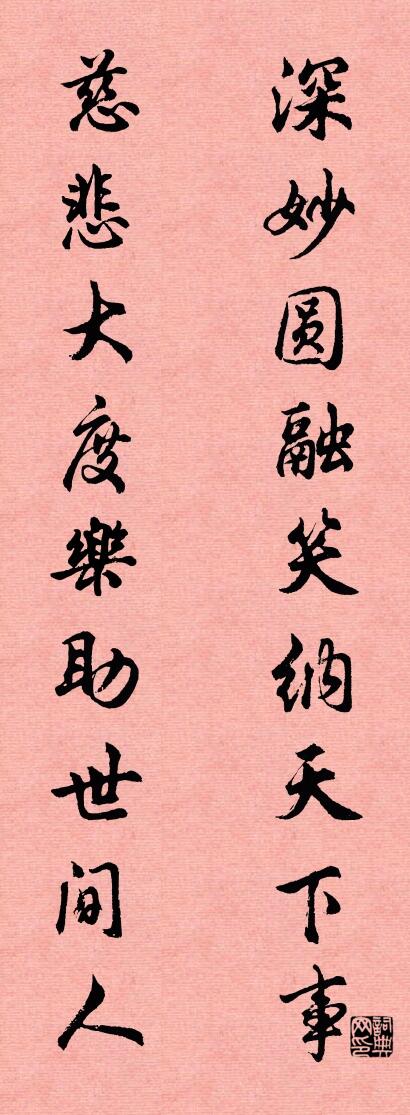 深妙圆融笑纳天下事
慈悲大度樂助世间人
詞典网印